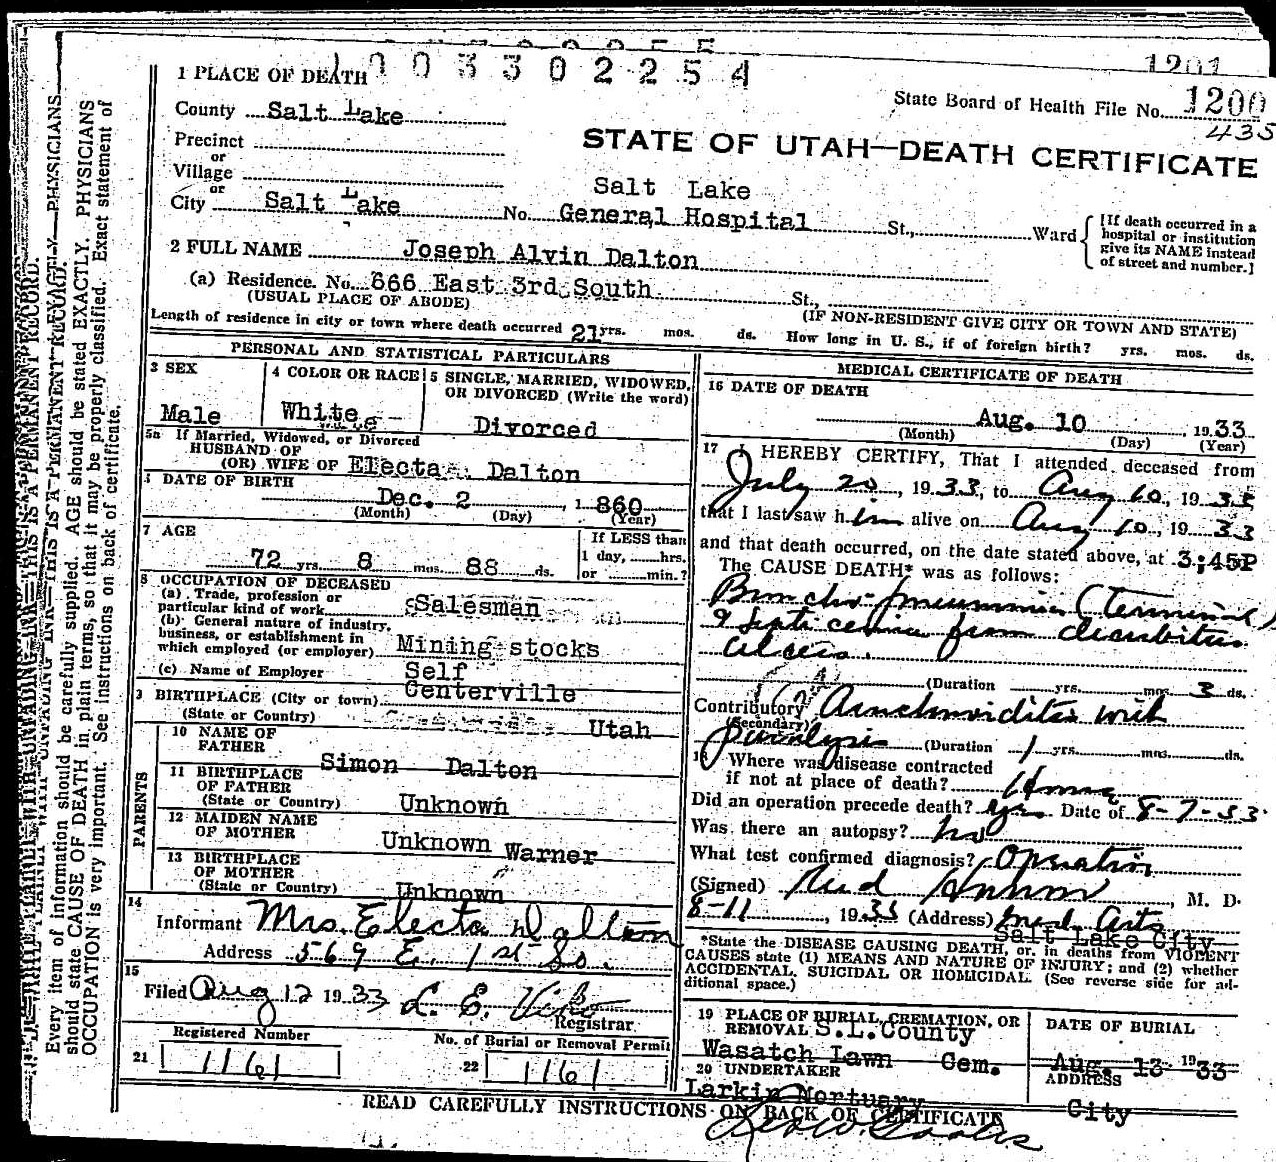 1201
1003302254
State Board of Health File No. 1200
435
STATE OF UTAH—DEATH CERTIFICATE
1 PLACE OF DEATH
County Salt Lake
Precinct
or
Village
or
City Salt Lake No. Salt Lake General Hospital St., Ward
[If death occurred in a hospital or institution give its NAME instead of street and number.]
2 FULL NAME Joseph Alvin Dalton
(a) Residence. No. 666 East 3rd South St.,
(USUAL PLACE OF ABODE) (IF NON-RESIDENT GIVE CITY OR TOWN AND STATE)
Length of residence in city or town where death occurred 21 yrs. mos. ds. How long in U. S., if of foreign birth? yrs. mos. ds.
PERSONAL AND STATISTICAL PARTICULARS
3 SEX
Male
4 COLOR OR RACE
White
5 SINGLE, MARRIED, WIDOWED, OR DIVORCED (Write the word)
Divorced
5a If Married, Widowed, or Divorced
HUSBAND OF
(OR) WIFE OF Electa Dalton
DATE OF BIRTH
Dec. 2, 1860
(Month) (Day) (Year)
7 AGE
72 yrs. 8 mos. 88 ds.
If LESS than
1 day, hrs.
or min.?
8 OCCUPATION OF DECEASED
(a) Trade, profession or
particular kind of work Salesman
(b) General nature of industry,
business, or establishment in
which employed (or employer) Mining stocks
(c) Name of Employer Self
9 BIRTHPLACE (City or town) Centerville
(State or Country) Utah
PARENTS
10 NAME OF
FATHER Simon Dalton
11 BIRTHPLACE
OF FATHER
(State or Country) Unknown
12 MAIDEN NAME
OF MOTHER Unknown Warner
13 BIRTHPLACE
OF MOTHER
(State or Country) Unknown
14
Informant Mrs. Electa Dalton
Address 569 E. 1st So.
15
Filed Aug 12 1933 L. E.
Registrar
Registered Number
21 1161
No. of Burial or Removal Permit
22 1161
MEDICAL CERTIFICATE OF DEATH
16 DATE OF DEATH
Aug. 10 1933
(Month) (Day) (Year)
17 I HEREBY CERTIFY, That I attended deceased from
July 20, 1933, to Aug 10, 1933
that I last saw him alive on Aug 10, 1933
and that death occurred, on the date stated above, at 3:45P
The CAUSE DEATH* was as follows:
Broncho-pneumonia (terminal)
Septicemia from decubitus
ulcers.
(Duration yrs. mos. 3 ds.
Contributory Arachnoiditis with
(Secondary)
paralysis (Duration 1 yrs. mos. ds.
Where was disease contracted
if not at place of death? Home
Did an operation precede death? yes Date of 8-7-33
Was there an autopsy? no
What test confirmed diagnosis? Operation
(Signed) M. D.
8-11, 1933 (Address) Med. Arts
Salt Lake City
*State the DISEASE CAUSING DEATH, or, in deaths from VIOLENT
CAUSES state (1) MEANS AND NATURE OF INJURY; and (2) whether
ACCIDENTAL, SUICIDAL OR HOMICIDAL. (See reverse side for ad-
ditional space.)
19 PLACE OF BURIAL, CREMATION, OR
REMOVAL S.L. County
Wasatch Lawn Cem.
DATE OF BURIAL
Aug. 13 1933
20 UNDERTAKER
Larkin Mortuary
ADDRESS
City
READ CAREFULLY INSTRUCTIONS ON BACK OF CERTIFICATE
Every item of information should be carefully supplied. AGE should be stated EXACTLY. PHYSICIANS
should state CAUSE OF DEATH in plain terms, so that it may be properly classified. Exact statement of
OCCUPATION is very important. See instructions on back of certificate.